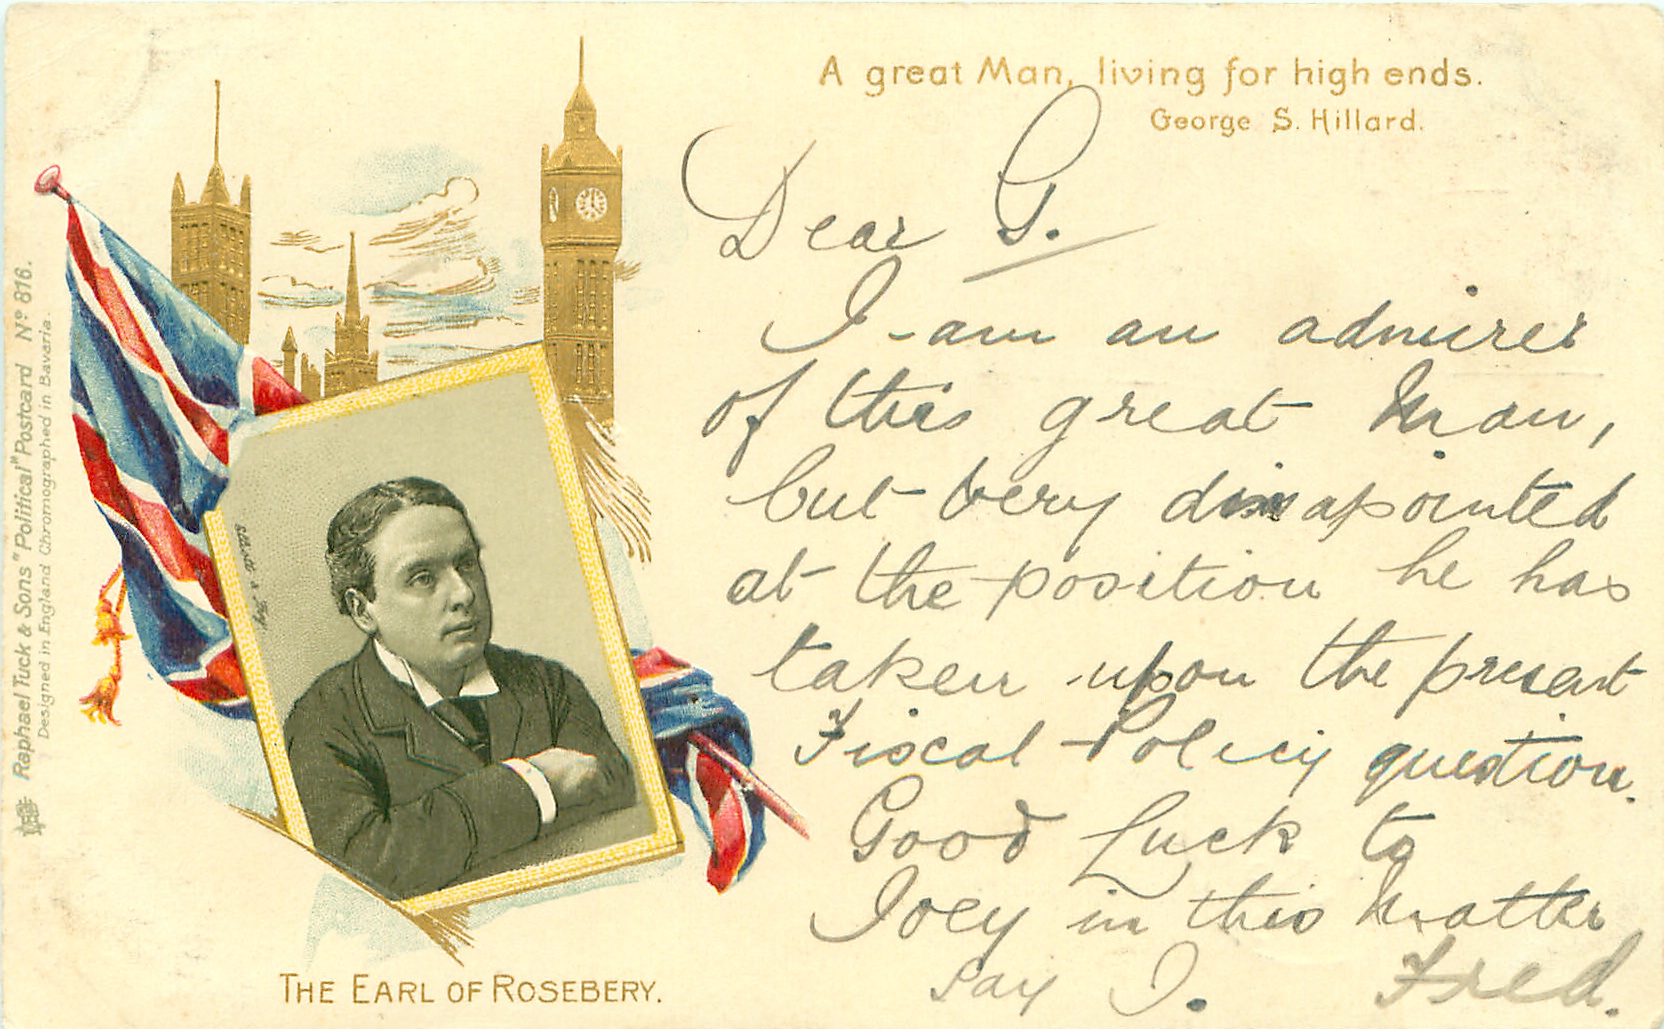 A great Man, living for high ends.
George S. Hillard.
Dear G.
I am an admirer
of this great Man,
but very disapointed
at the position he has
taken upon the present
Fiscal Policy question.
Good Luck to
Joey in this Matter
say I. Fred.
THE EARL OF ROSEBERY.
Raphael Tuck & Sons "Political" Postcard Nº 816.
Designed in England Chromographed in Bavaria.
Elliott & Fry